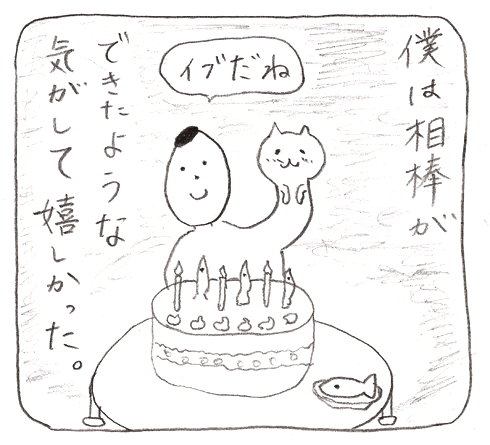 僕は相棒が
イブだね
できたような
気がして嬉しかった。